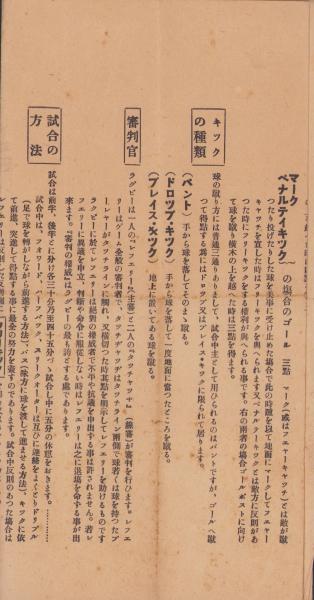 マーク
ペナルテイキツク の塲合のゴール 三點 マーク(或はフエヤーキヤツチ)とは敵が蹴
つたり投げたりした球を美事に受け止めた塲合で此の時踵を以て地面にマークしてフエヤー
キヤツチを宣した時はフリーキツクを與へられます又ペナルテーキツクとは敵方に反則があ
つた時にフリーキツクをする權利が與へられる事です。右の兩者の塲合ゴールポストに向け
て球を蹴り横木の上を越へた時は三點を得ます。
キツク
の種類
球の蹴り方は普通三通りありまして、試合中主として用ひられるのはパントですが、ゴールへ蹴
つて得點する爲にはドロツプ又はプレイス・キツクに限られて居ります。
(パント) 手から球を落してそのまゝ蹴る。
(ドロツプ・キツク) 手から球を落して一度地面に當つたところを蹴る。
(プレイス・キツク) 地上に置いてある球を蹴る。
審判官
ラグビーは一人の『レフエリー』(主審)と二人の『タツチヤツヂ』(線審)が審判を行ひます。レフエ
リーはゲーム全般の審判者で、タツチヂヤツヂはタツチライン兩側で球若くは球を持つたプ
レーヤーがタツチラインに觸れ、又橫切つた時其點を明示してレフエリーを助けるものです
ラグビーに於てレフエリーは絕對の權威者で不平や抗議を申出する事は許されません。若レ
フエリーに異議を申立、判斷や命令に服從しない時はレフエリーは之に退塲を命ずる事が出
來ます。『審判の權威』はラグビーの最も誇とする處であります。
試合の
方法
試合は前半、後半とに分け各三十分乃至四十五分づゝ試合し中に五分の休憇をおきます。
試合中は、フオワード ハーフバツク、スリークオーターは互ひに連絡をよくとりドリブル
(足で球を轉がしながら前進する方法)、パス(味方に球を渡して進ませる方法)、キツクに依
て前進、突進して得點する事に最全の努力を拂すのであります。試合中反則のあつた塲合は